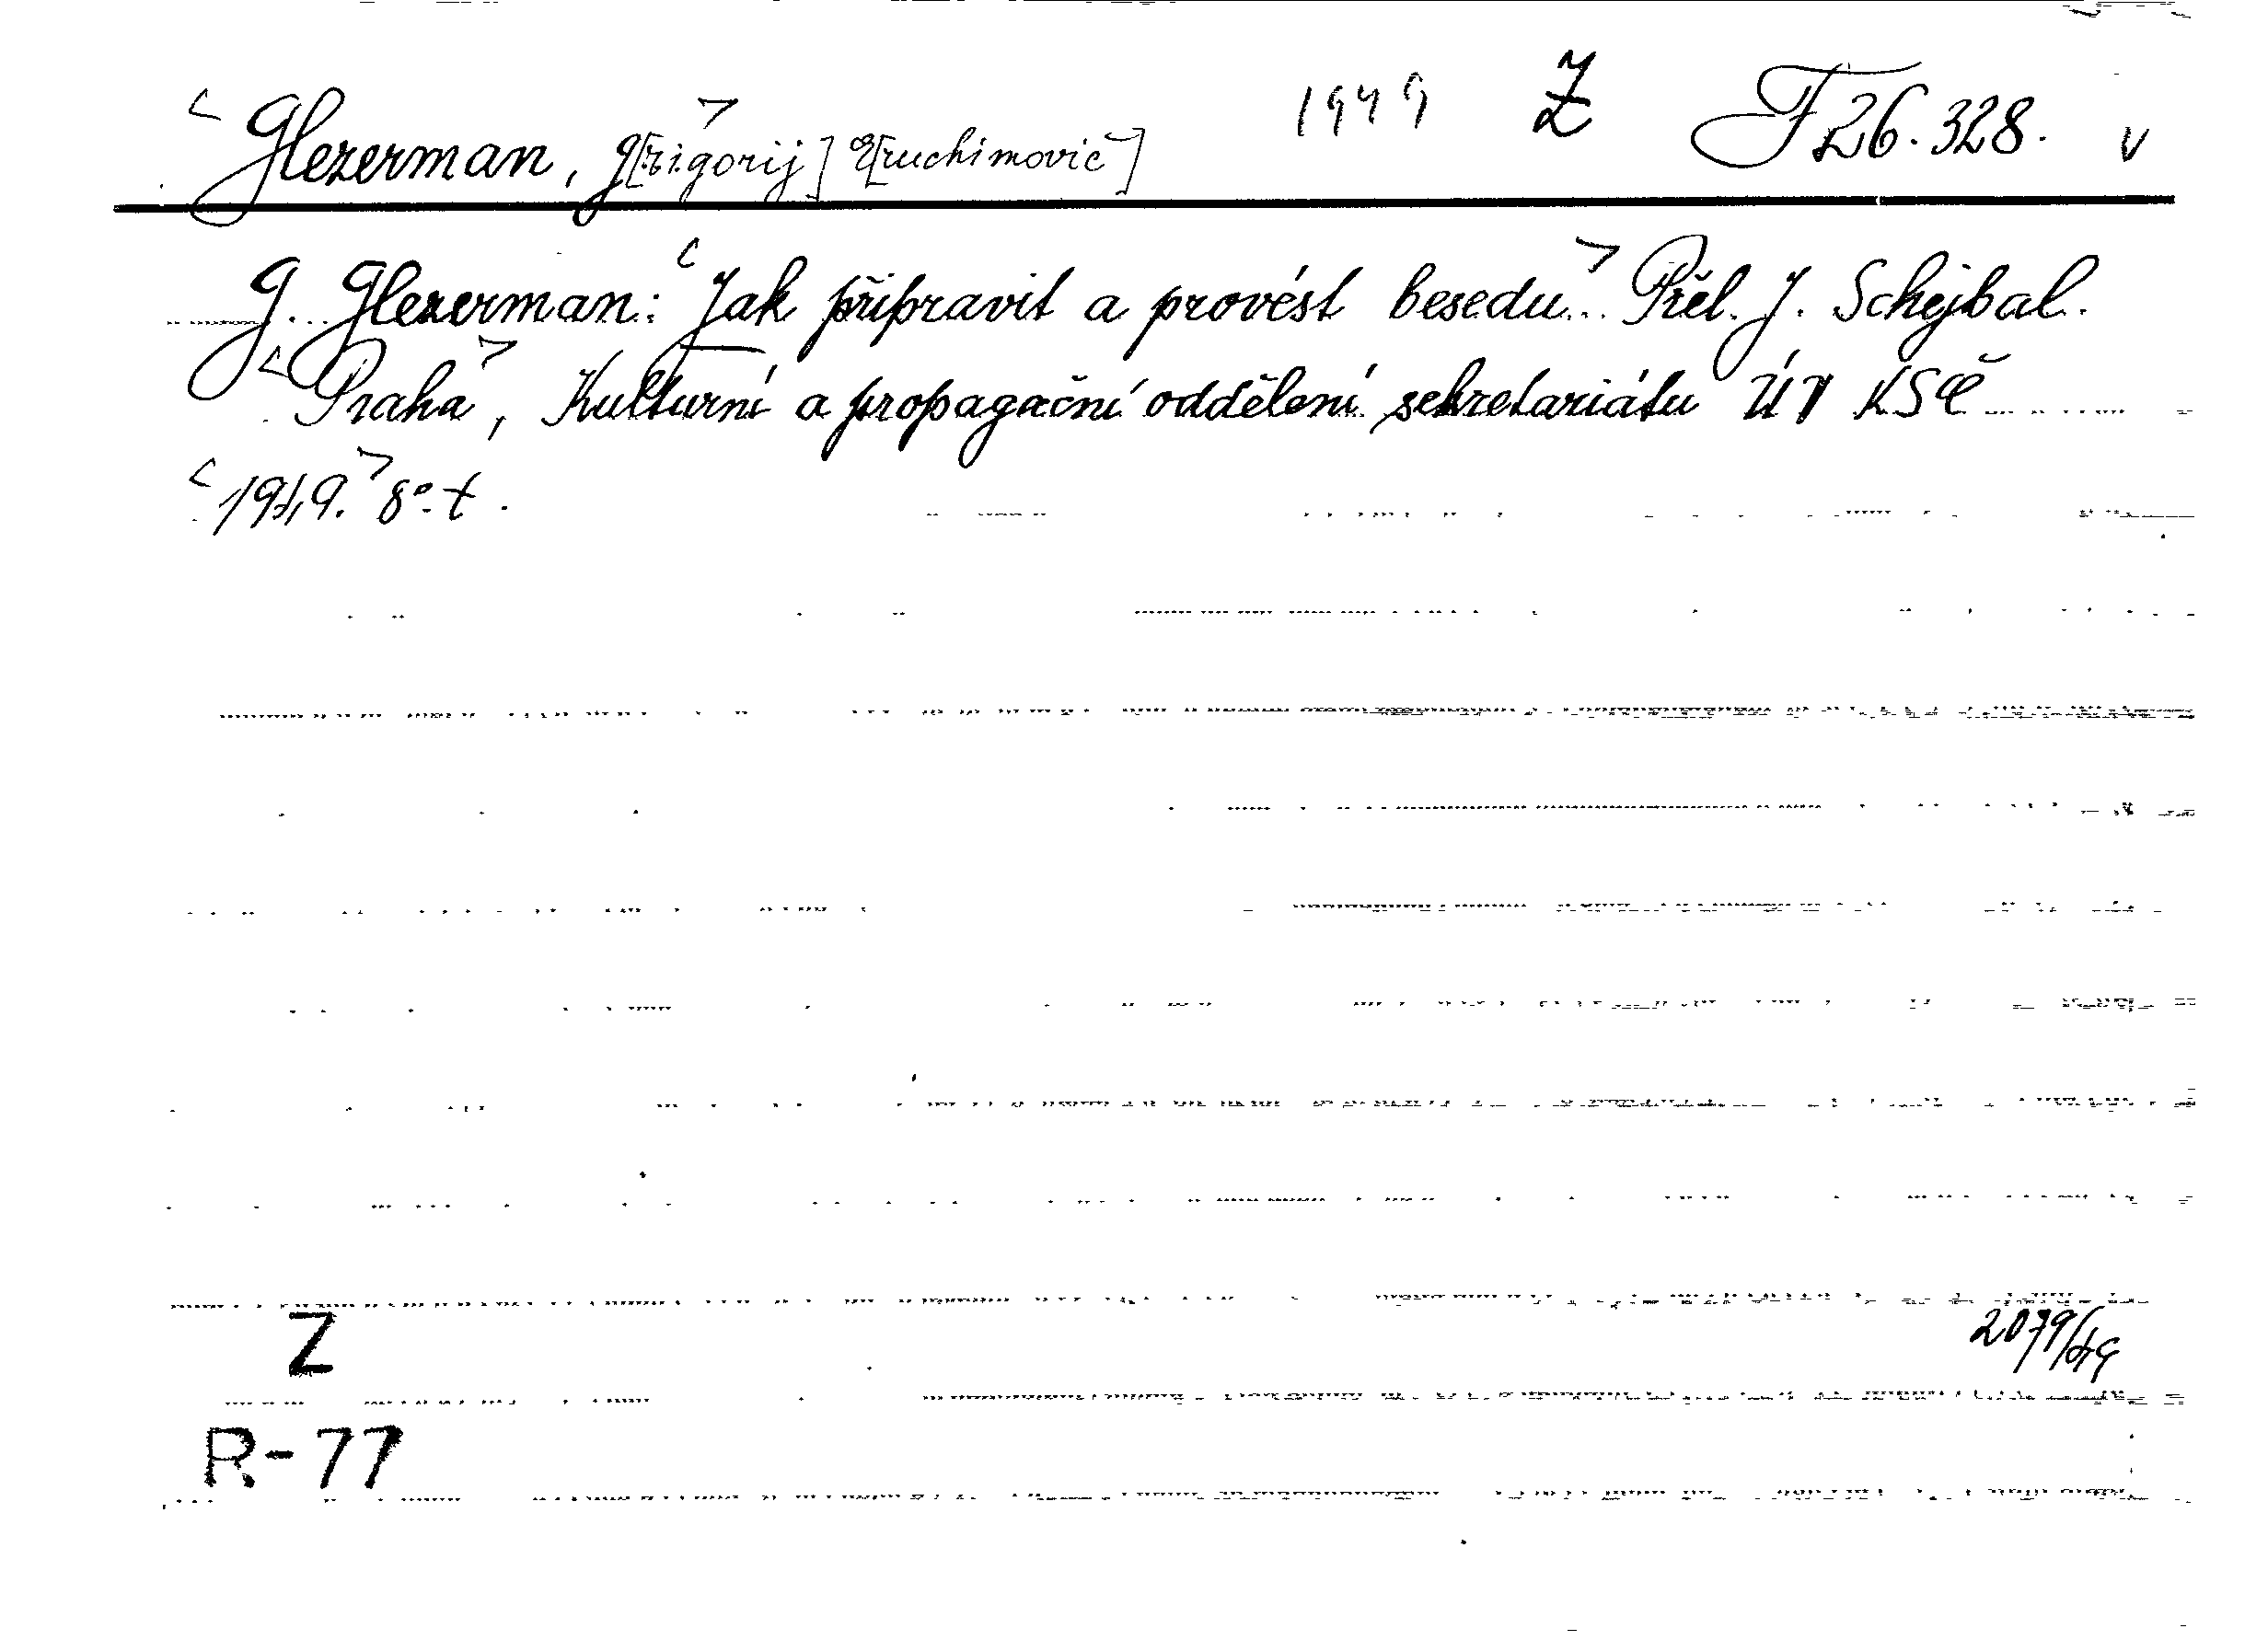 <Glezerman, G[rigorij> ] E[ruchimovič] 1949 Z F 26.328. v
G. Glezerman: <Jak připravit a provést besedu.> Přel. J. Schejbal.
<Praha>, Kulturní a propagační oddělení sekretariátu ÚV KSČ
<1949.> 8°-t.
Z 2079/49
R-77